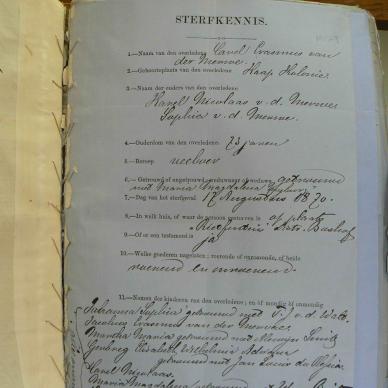 STERFKENNIS.
1.—Naam van den overledene: Carel Erasmus van
der Merwe.
2.—Geboorteplaats van den overledene Kaap Kolonie
3.—Naam der ouders van den overledene
Karel Nicolaas v. d. Merwe
Sophia v. d. Merwe.
4.—Ouderdom van den overledene: 73 jaren
5.—Beroep
6.—Getrouwd of ongetrouwd, weduwnaar of weduwe, getrouwd
met Maria Magdalena
7.—Dag van het sterfgeval 17 Augustus 1870.
8.—In welk huis, of waar de persoon gestorven is op plaats
"Rietfontein" Distr. Boshof
9.—Of er een testament is ja
10.—Welke goederen nagelaten; roerende of onroerende, of beide
roerend en onroerend.
11.—Namen der kinderen van den overledene; en of mondig of onmondig
Johanna Sophia getrouwd met v. d. Walt.
Jacobus Erasmus van der Merwe.
Martha Maria getrouwd met Smit
Elizabeth Wilhelmina
getrouwd met Jan du Plessis
Karel Nicolaas.
Maria Magdalena getrouwd